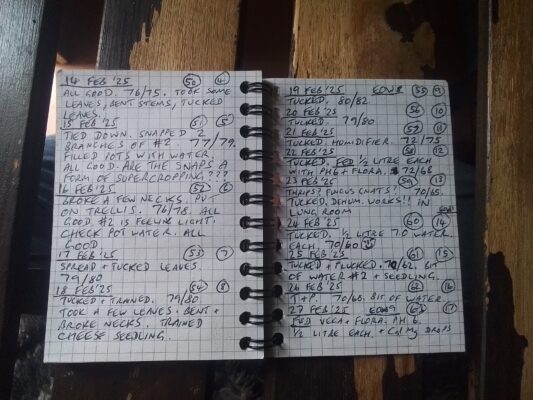 14 FEB '25 50 4
ALL GOOD. 76/75. TOOK SOME
LEAVES, BENT STEMS, TUCKED
LEAVES.
15 FEB '25 51 5
TIED DOWN. SNAPPED 2
BRANCHES OF #2. 77/79.
FILLED POTS WITH WATER.
ALL GOOD. ARE THE SNAPS A
FORM OF SUPERCROPPING???
16 FEB '25 52 6
BROKE A FEW NECKS. PUT
ON TRELLIS. 76/78. ALL
GOOD. #2 IS FEELING LIGHT.
CHECK POT WATER. ALL
GOOD
17 FEB '25 53 7
SPREAD + TUCKED LEAVES.
79/80
18 FEB '25 54 8
TUCKED + TRAINED. 79/80
TOOK A FEW LEAVES. BENT +
BROKE NECKS. TRAINED
CHEESE SEEDLING.
19 FEB '25 EOW8 55 9
TUCKED. 80/82.
20 FEB '25 56 10
TUCKED. 79/80
21 FEB '25 11
TUCKED. HUMIDIFIER. 72/73
22 FEB '25 12
TUCKED. FED 1/2 LITRE EACH
WITH PH6 + FLORA. 72/68
23 FEB '25 59 13
THRIPS? FUNGUS GNATS? 70/65.
TUCKED, DEHUM. WORKS!! IN
LUNG ROOM
24 FEB '25 60 14
TUCKED. 1/2 LITRE 7.0 WATER
EACH. 70/60
25 FEB '25 61 15
TUCKED + PLUCKED. 70/62. BIT
OF WATER #2 + SEEDLING.
26 FEB '25 62 16
T+P. 70/68. BIT OF WATER.
27 FEB '25 EOW9 63 17
FED VEGA + FLORA. PH 6.
1/2 LITRE EACH. + CalMg DROPS